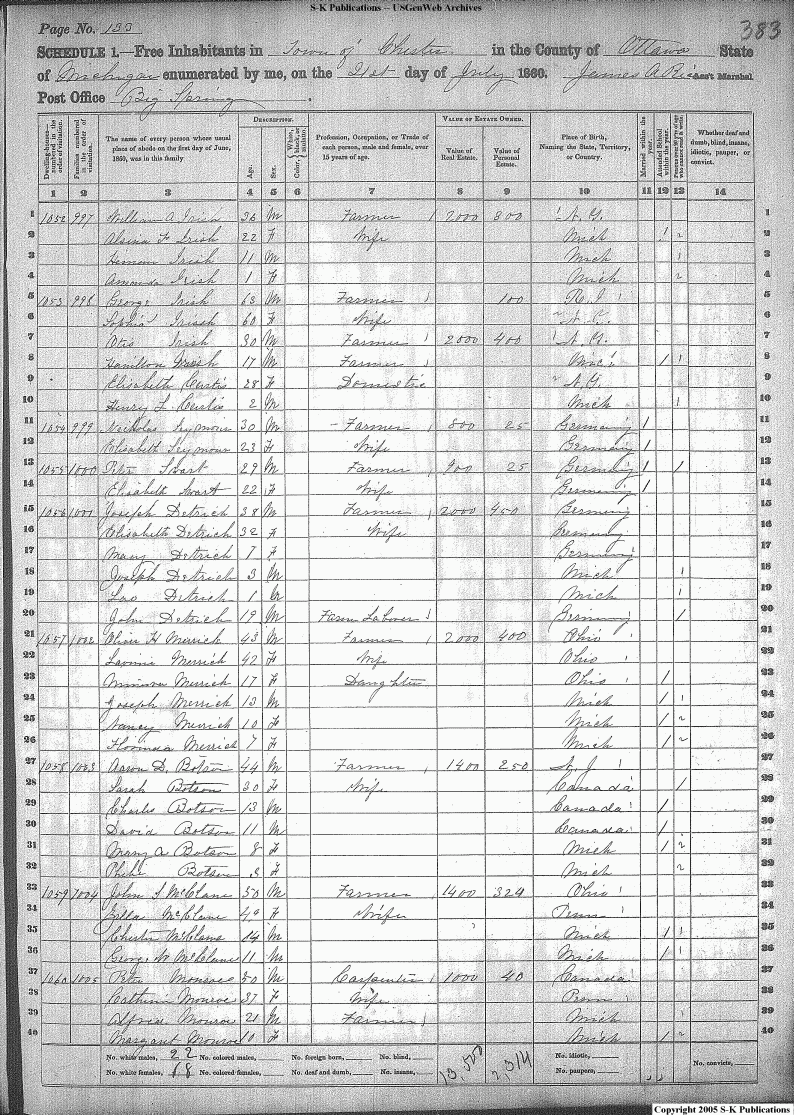 S-K Publications – USGenWeb Archives
Page No. 133
383
SCHEDULE 1.—Free Inhabitants in Town of Chester in the County of Ottawa State
of Michigan enumerated by me, on the 21st day of July 1860. James A Ass't Marshal
Post Office Big Spring.
Dwelling-houses—numbered in the order of visitation.
Families numbered in the order of visitation.
The name of every person whose usual place of abode on the first day of June, 1860, was in this family
DESCRIPTION.
Age.
Sex.
Color, White, black, or mulatto.
Profession, Occupation, or Trade of each person, male and female, over 15 years of age.
VALUE OF ESTATE OWNED.
Value of Real Estate.
Value of Personal Estate.
Place of Birth, Naming the State, Territory, or Country.
Married within the year.
Attended School within the year.
Persons over 20 y'rs of age who cannot read & write.
Whether deaf and dumb, blind, insane, idiotic, pauper, or convict.
1 2 3 4 5 6 7 8 9 10 11 12 13 14
1 1052 997 William A Irish 36 M Farmer 2000 800 N.Y. 1
2 F Irish 22 F Wife Mich 1 2
3 Heman Irish 11 M Mich 3
4 Amanda Irish 1 F Mich 4
5 1053 998 George Irish 63 M Farmer 100 R.I 5
6 Sophia Irish 60 F Wife 6
7 Otis Irish 30 M Farmer 2000 400 N.Y. 7
8 Hamilton Irish 17 M Farmer 1 8
9 Elisabeth Curtis 28 F Domestic N.Y. 9
10 Henry L Curtis 2 M Mich 10
11 1054 999 Nicholas Seymour 30 M Farmer 800 25 Germany 1 11
12 Elisabeth Seymour 23 F Wife Germany 1 12
13 1055 1000 Peter Swart 29 M Farmer 900 25 Germany 1 1 13
14 Elisabeth Swart 22 F Wife Germany 1 14
15 1056 1001 Joseph Detrich 38 M Farmer 2000 450 Germany 15
16 Elisabeth Detrich 32 F Wife Germany 16
17 Mary Detrich 7 F Germany 17
18 Joseph Detrich 3 M Mich 18
19 Detrich 1 Mich 19
20 John Detrich 19 M Farm Laborer Germany 1 20
21 1057 1002 H Merrick 43 M Farmer 2000 400 Ohio 21
22 Merrick 42 F Wife Ohio 22
23 Minerva Merrick 17 F Daughter Ohio 1 23
24 Joseph Merrick 13 M Mich 1 24
25 Nancy Merrick 10 F Mich 1 25
26 Merrick 7 F Mich 1 26
27 1058 1003 Aaron D. Botson 44 M Farmer 1400 250 N.J 27
28 Sarah Botson 30 F Wife Canada 1 28
29 Charles Botson 13 M Canada 1 29
30 David Botson 11 M Canada 1 30
31 Mary A Botson 8 F Mich 1 31
32 Phebe Botson 3 F Mich 32
33 1059 1004 John S McClane 50 M Farmer 1400 324 Ohio 33
34 McClane 49 F Wife Penn 34
35 Chester McClane 14 M Mich 1 35
36 George W McClane 11 M Mich 1 36
37 1060 1005 Peter Monroe 50 M Carpenter 1000 40 Canada 37
38 Catherine Monroe 37 F Wife Penn 38
39 Alfred Monroe 21 M Farmer Mich 39
40 Margaret Monroe 10 F Mich 1 40
No. white males, 22 No. colored males, No. foreign born, No. blind, No. idiotic, No. convicts,
No. white females, 18 No. colored females, No. deaf and dumb, No. insane, 13,500 2,314 No. paupers,
Copyright 2005 S-K Publications